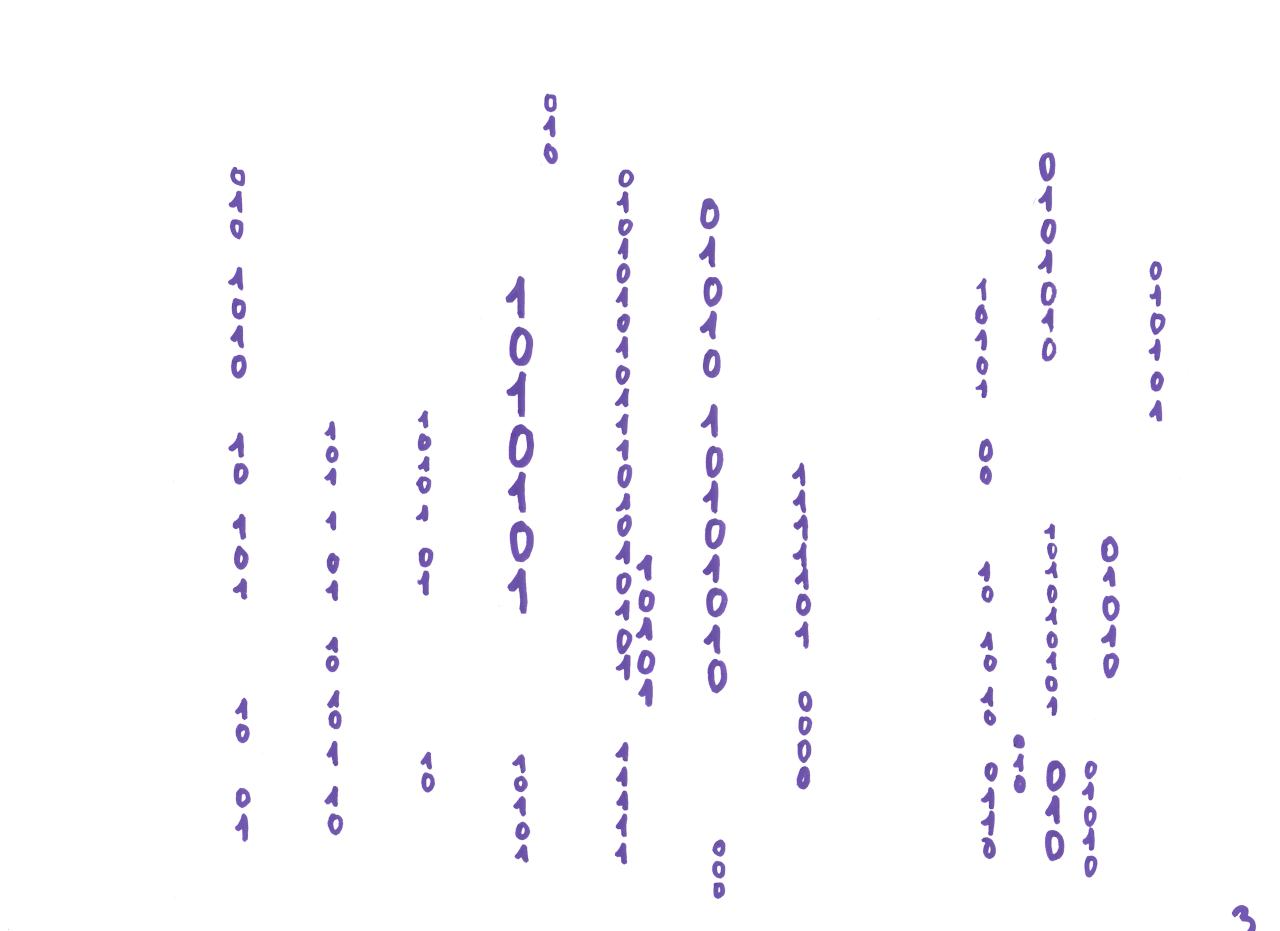 010 1010 10 101 10 01
101 1 01 10 10 1 10
1010 1 01 10
1010101 10101
010
01010101011101010101 11111
10101
01010 10101010 000
1111101 0000
10101 00 10 10 10 0110
010
0101010 101010101 010
01010
01010
010101
3